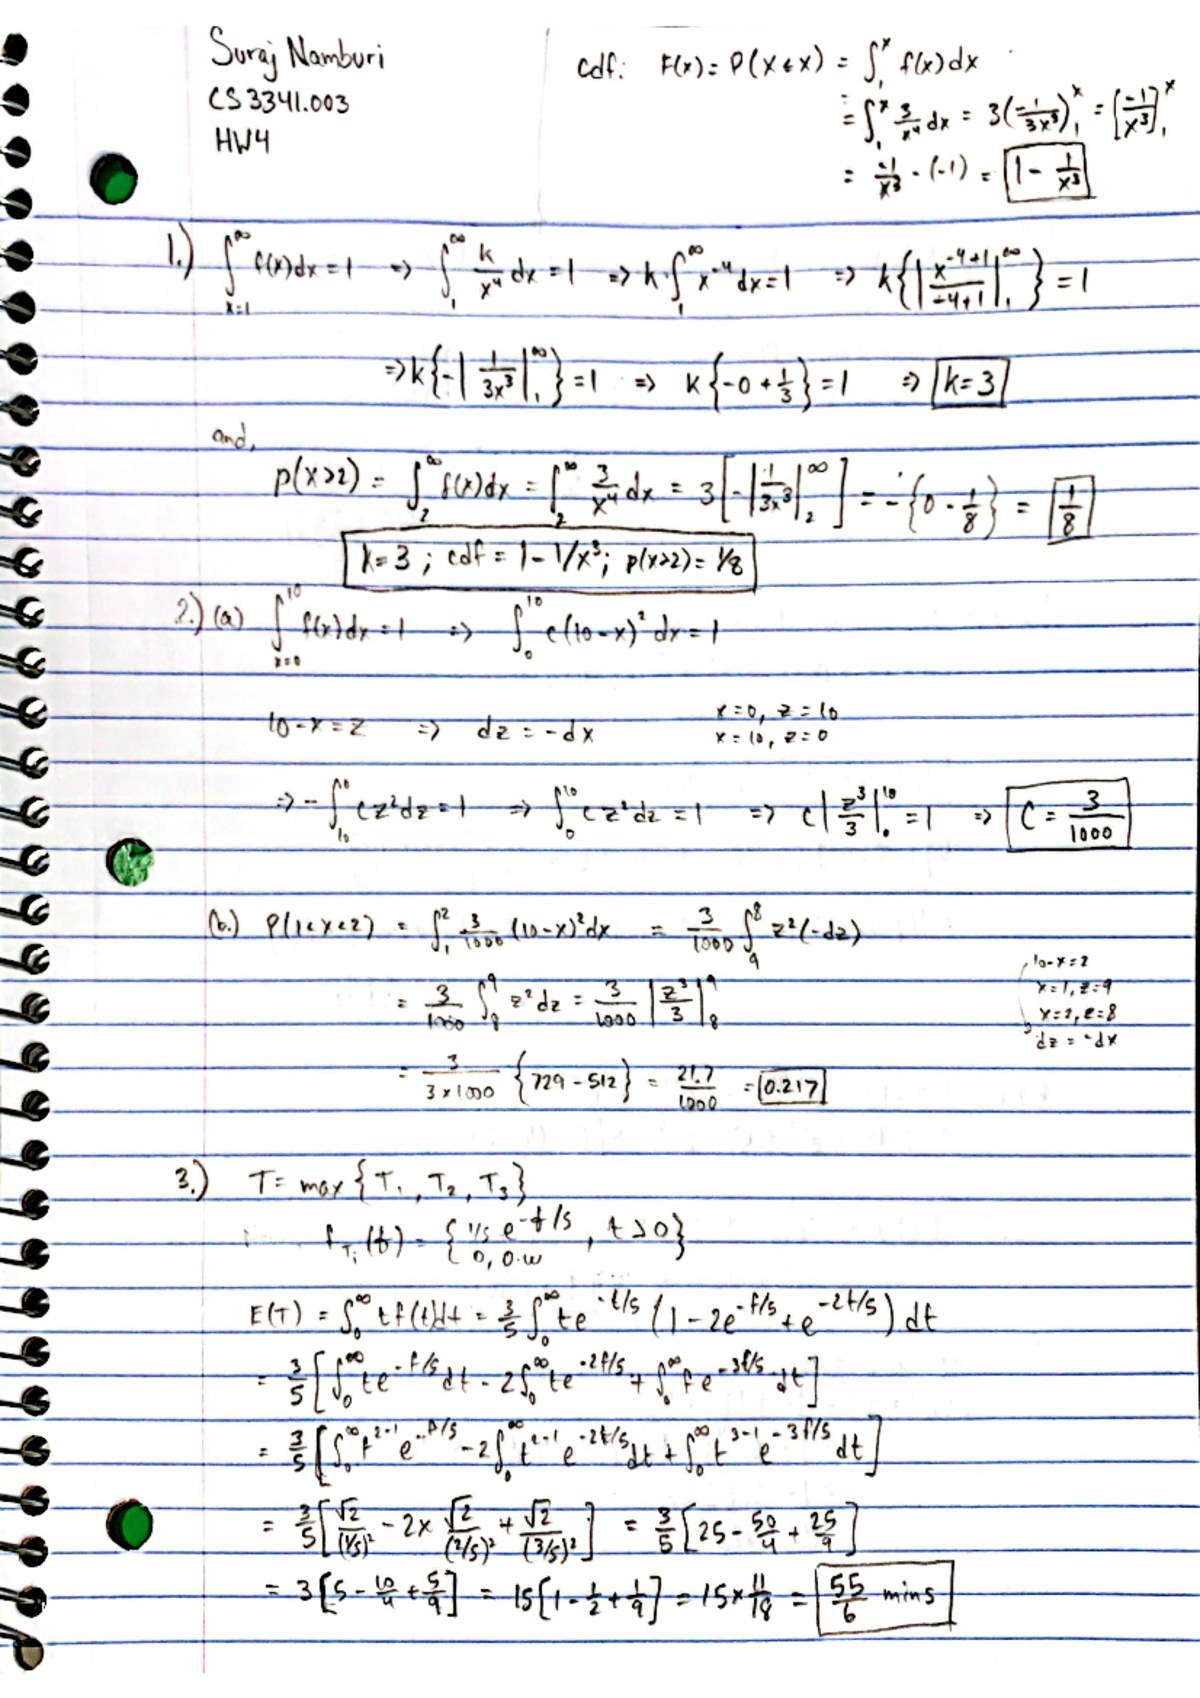 Suraj Namburi
CS 3341.003
HW4
cdf: F(x) = P(X ≤ x) = ∫₁ˣ f(x) dx
= ∫₁ˣ 3/x⁴ dx = 3(-1/3x³)₁ˣ = [-1/x³]₁ˣ
= -1/x³ - (-1) = 1 - 1/x³
1.) ∫_{x=1}^∞ f(x)dx = 1 => ∫₁^∞ k/x⁴ dx = 1 => k·∫₁^∞ x⁻⁴ dx = 1 => k{|x⁻⁴⁺¹/-4+1|₁^∞} = 1
=> k{-|1/3x³|₁^∞} = 1 => k{-0 + 1/3} = 1 => k=3
and,
p(x>2) = ∫₂^∞ f(x)dx = ∫₂^∞ 3/x⁴ dx = 3[-|1/3x³|₂^∞] = -{0 - 1/8} = 1/8
k=3 ; cdf = 1 - 1/x³; p(x>2) = 1/8
2.) (a) ∫_{x=0}^{10} f(x)dx = 1 => ∫₀¹⁰ c(10-x)² dx = 1
10-x = z => dz = -dx x=0, z=10
x=10, z=0
=> -∫₁₀⁰ cz²dz = 1 => ∫₀¹⁰ cz²dz = 1 => c|z³/3|₀¹⁰ = 1 => C = 3/1000
(b.) P(1<x<2) = ∫₁² 3/1000 (10-x)²dx = 3/1000 ∫₉⁸ z²(-dz)
10-x=z
x=1, z=9
x=2, z=8
dz = -dx
= 3/1000 ∫₈⁹ z²dz = 3/1000 |z³/3|₈⁹
= 3/3×1000 {729 - 512} = 21.7/1000 = 0.217
3.) T = max {T₁, T₂, T₃}
f_{Tᵢ}(t) = {1/5 e^{-t/5}, t>0}
0, o.w
E(T) = ∫₀^∞ tf(t)dt = 3/5 ∫₀^∞ te^{-t/5} (1 - 2e^{-t/5} + e^{-2t/5}) dt
= 3/5 [∫₀^∞ te^{-t/5} dt - 2∫₀^∞ te^{-2t/5} + ∫₀^∞ te^{-3t/5} dt]
= 3/5 [∫₀^∞ t^{2-1} e^{-t/5} - 2∫₀^∞ t^{2-1} e^{-2t/5} dt + ∫₀^∞ t^{3-1} e^{-3t/5} dt]
= 3/5 [√2/(1/5)² - 2× √2/(2/5)² + √2/(3/5)²] = 3/5 [25 - 50/4 + 25/9]
= 3[5 - 10/4 + 5/9] = 15[1 - 1/2 + 1/9] = 15 × 11/18 = 55/6 mins